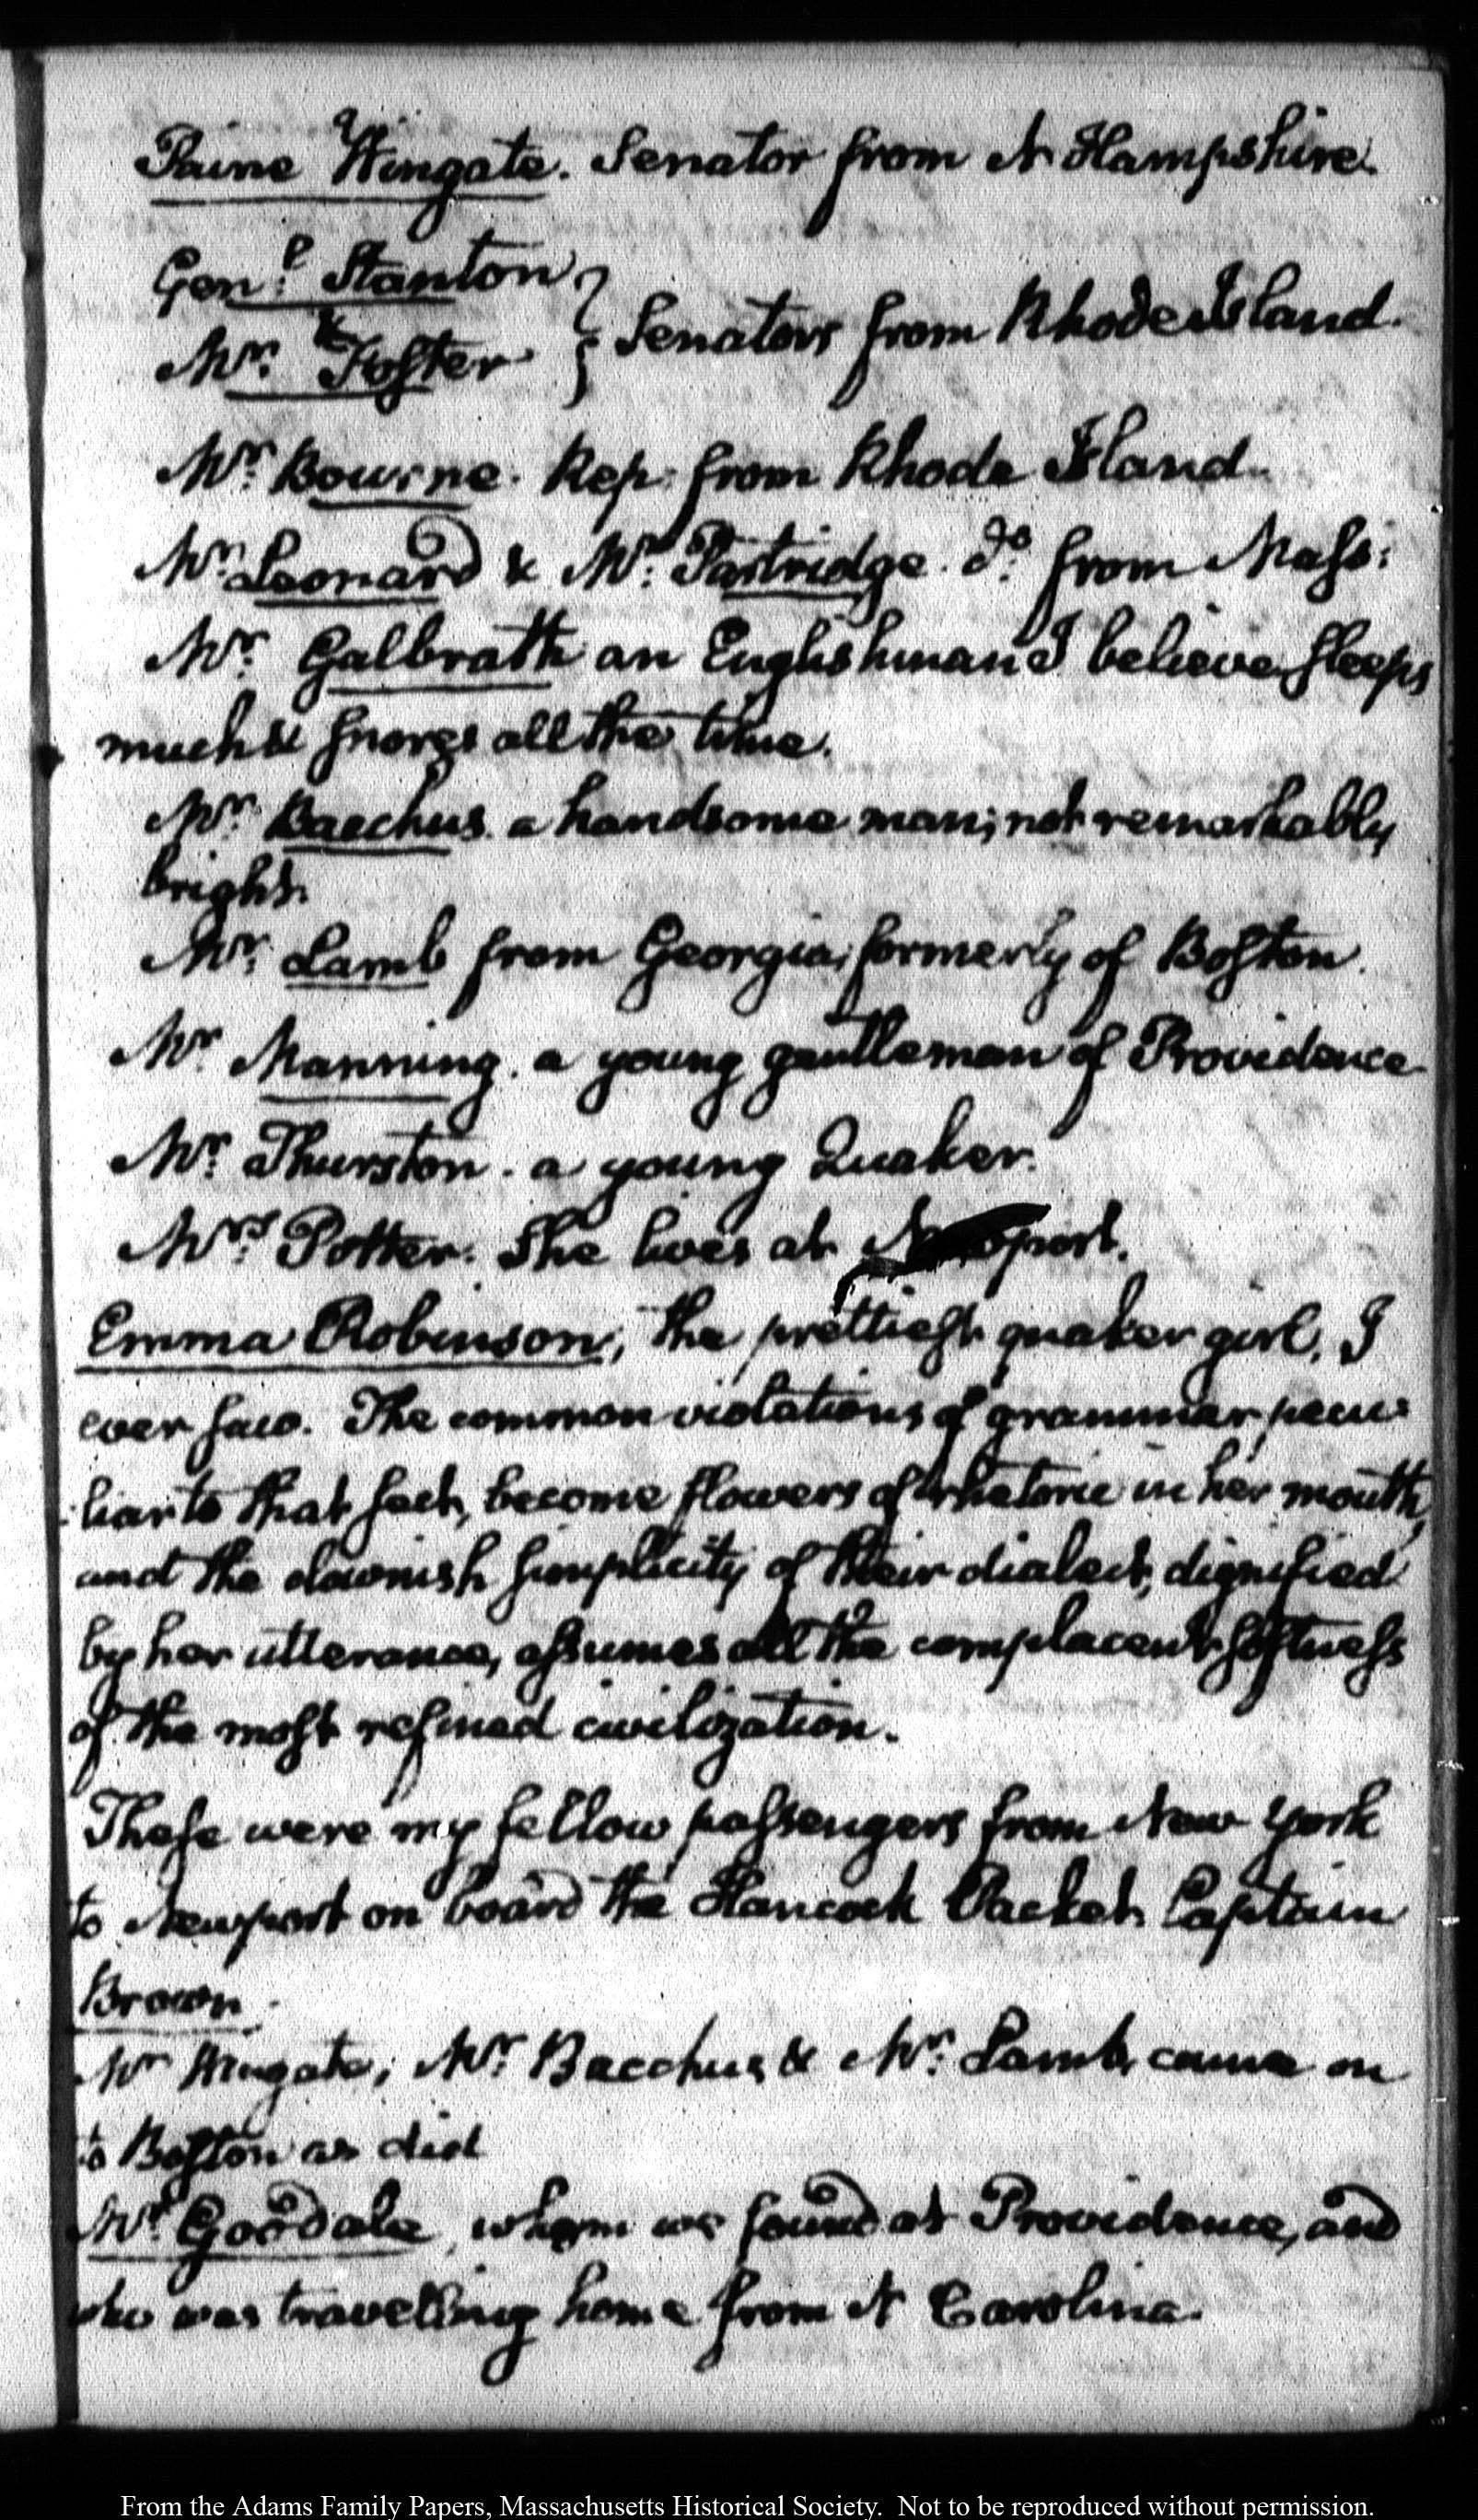 Paine Wingate. Senator from N Hampshire.
Gen.l Stanton
&
Mr. Foster } Senators from Rhode Island.
Mr. Bourne. Rep. from Rhode Island.
Mr. Leonard & Mr. Partridge. do. from Mass:
Mr. Galbrath an Englishman I believe sleeps
much & snores all the time.
Mr. Bacchus. a handsome man; not remarkably
bright.
Mr. Lamb from Georgia, formerly of Boston.
Mr Manning. a young gentleman of Providence
Mr. Thurston. a young Quaker.
Mrs Potter. She lives at Newport.
Emma Robinson, the prettiest quaker girl, I
ever saw. The common violations of grammar, pecu-
-liar to that sect, become flowers of rhetoric in her mouth,
and the clownish simplicity of their dialect, dignified
by her utterance, assumes all the complacent softness
of the most refined civilization.
These were my fellow passengers from New York
to Newport on board the Hancock Packet. Captain
Brown.
Mr Wingate, Mr. Bacchus & Mr. Lamb, came on
to Boston as did
Mr. Goodale, whom we found at Providence, and
who was travelling home from N Carolina.
From the Adams Family Papers, Massachusetts Historical Society. Not to be reproduced without permission.